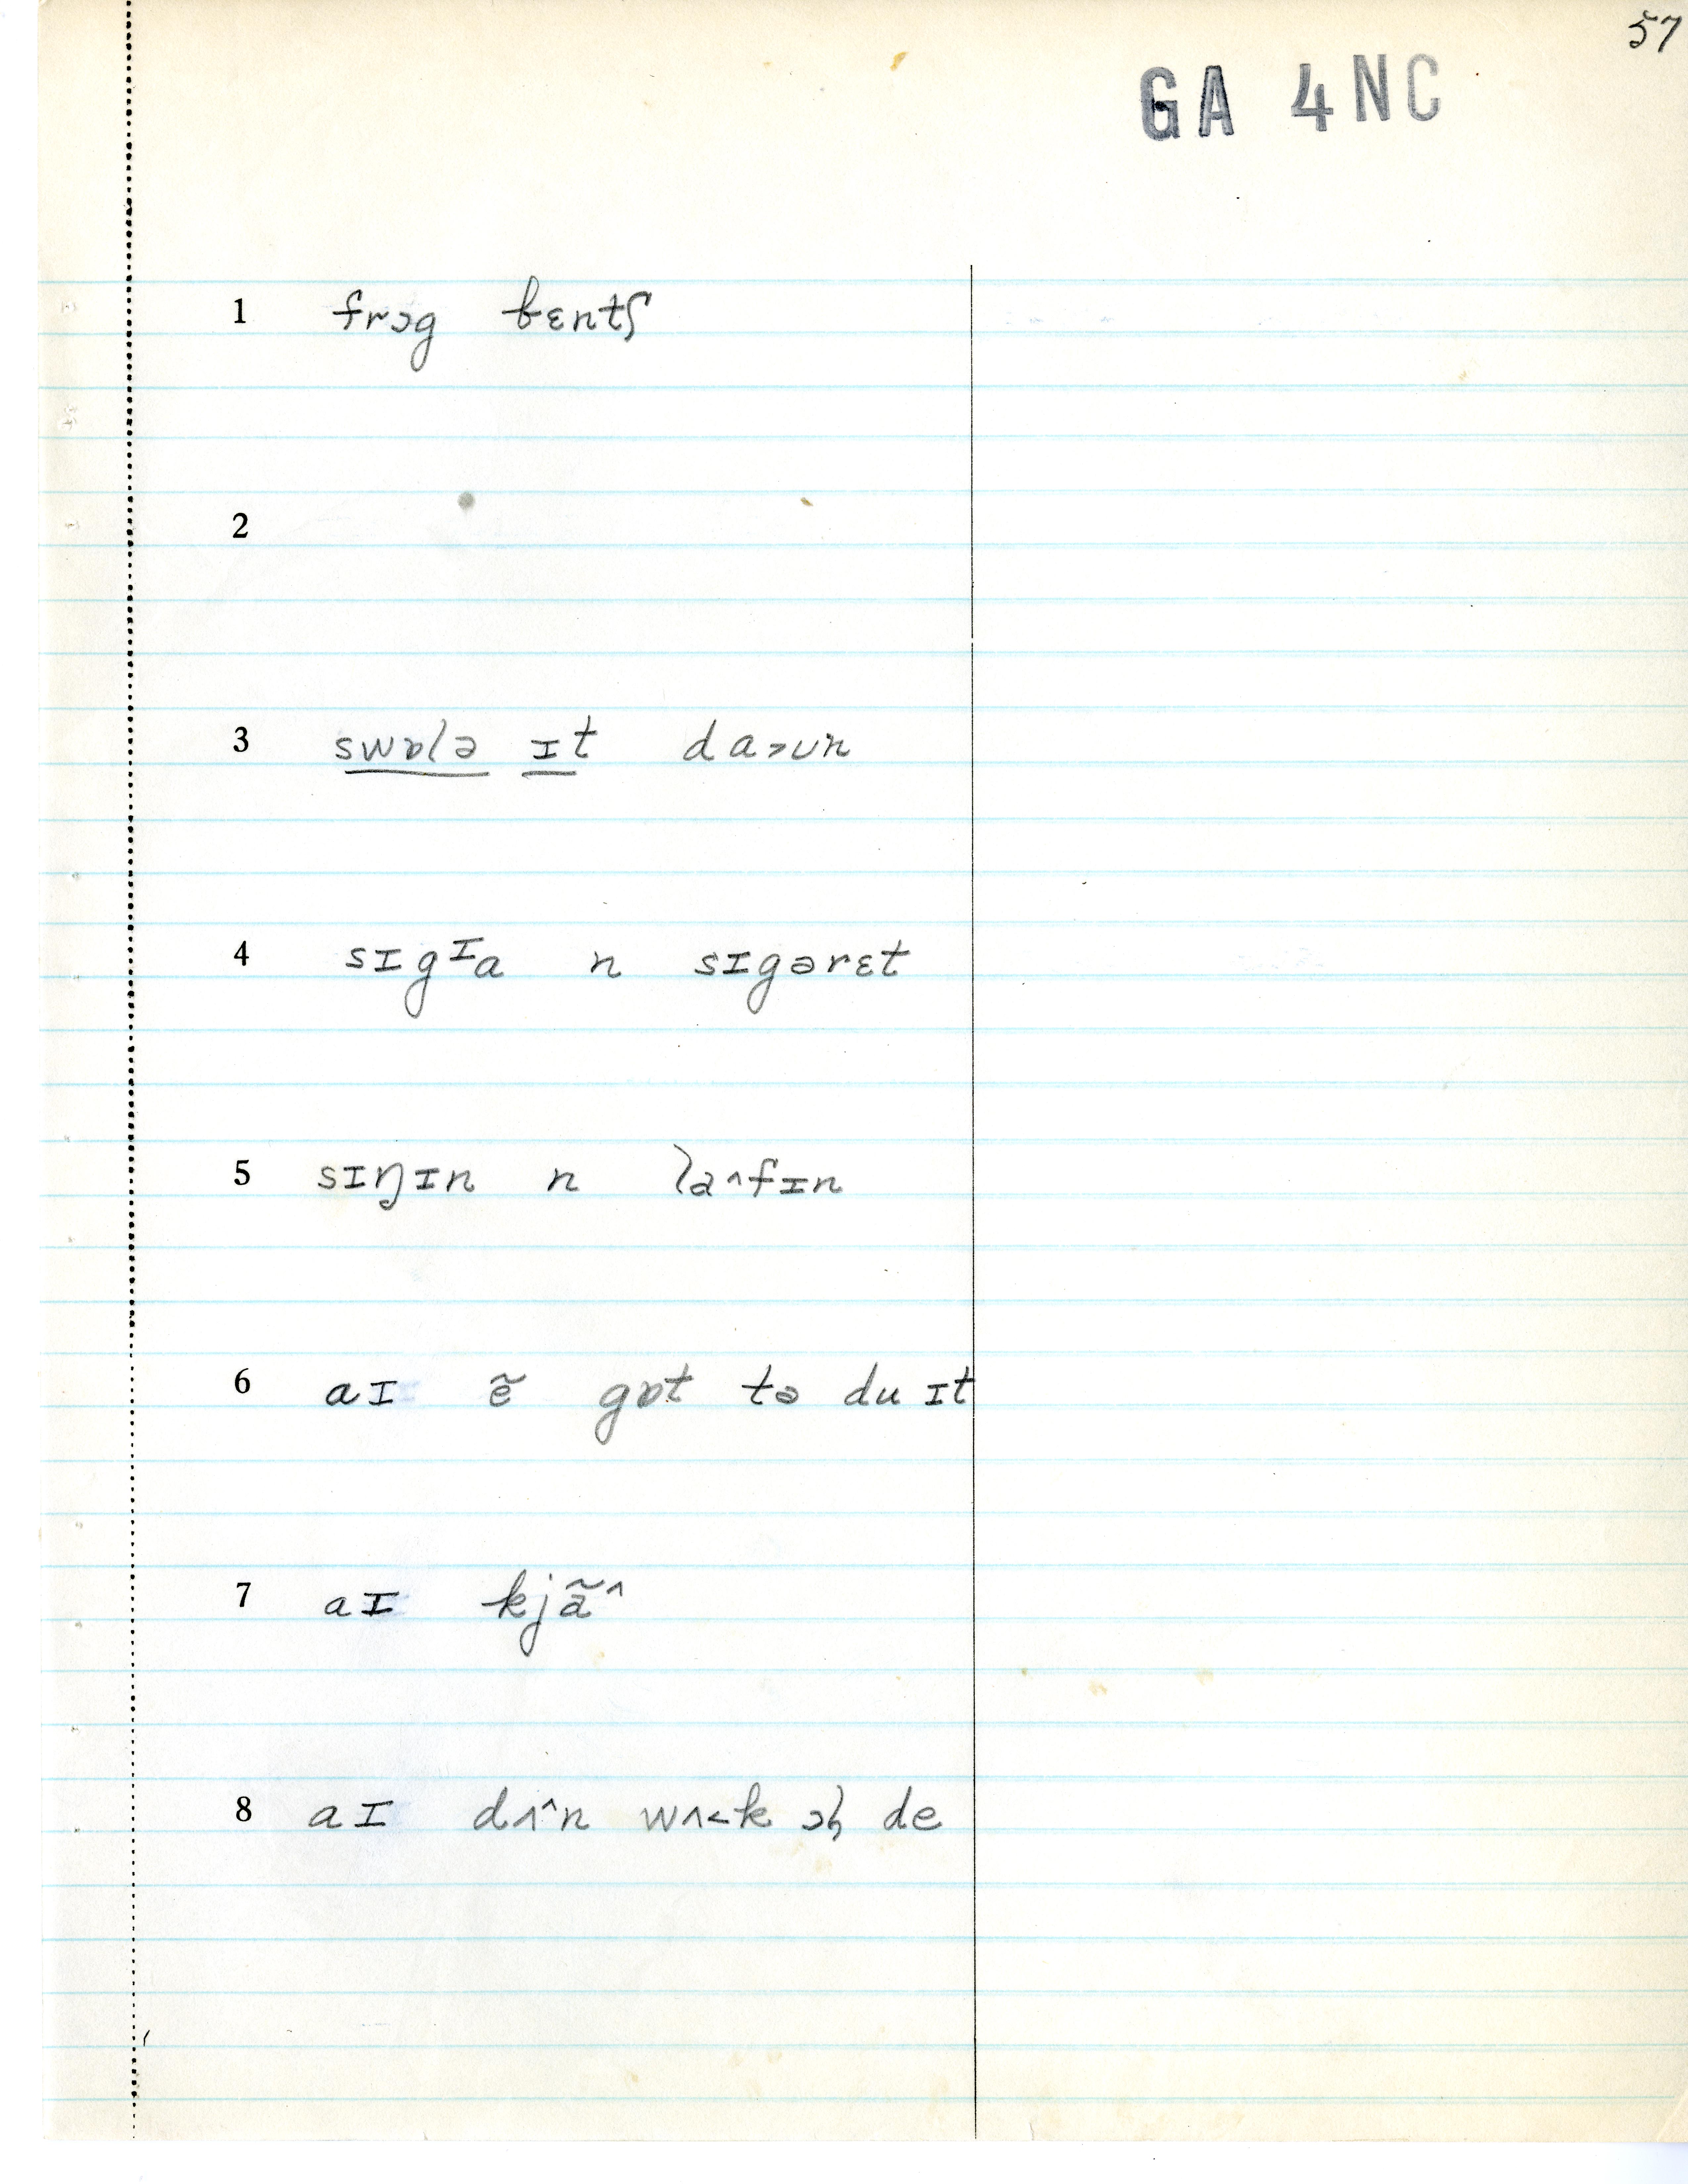 57
GA 4NC
1 frɔg bɛntʃ
2
3 swɒlə ɪt da˃ʊn
4 sɪgᶦa n sɪgərɛt
5 sɪŋɪn n la^fɪn
6 aɪ ẽ gɒt tə du ɪt
7 aɪ kjã^
8 aɪ dʌ^n wʌ˂k de